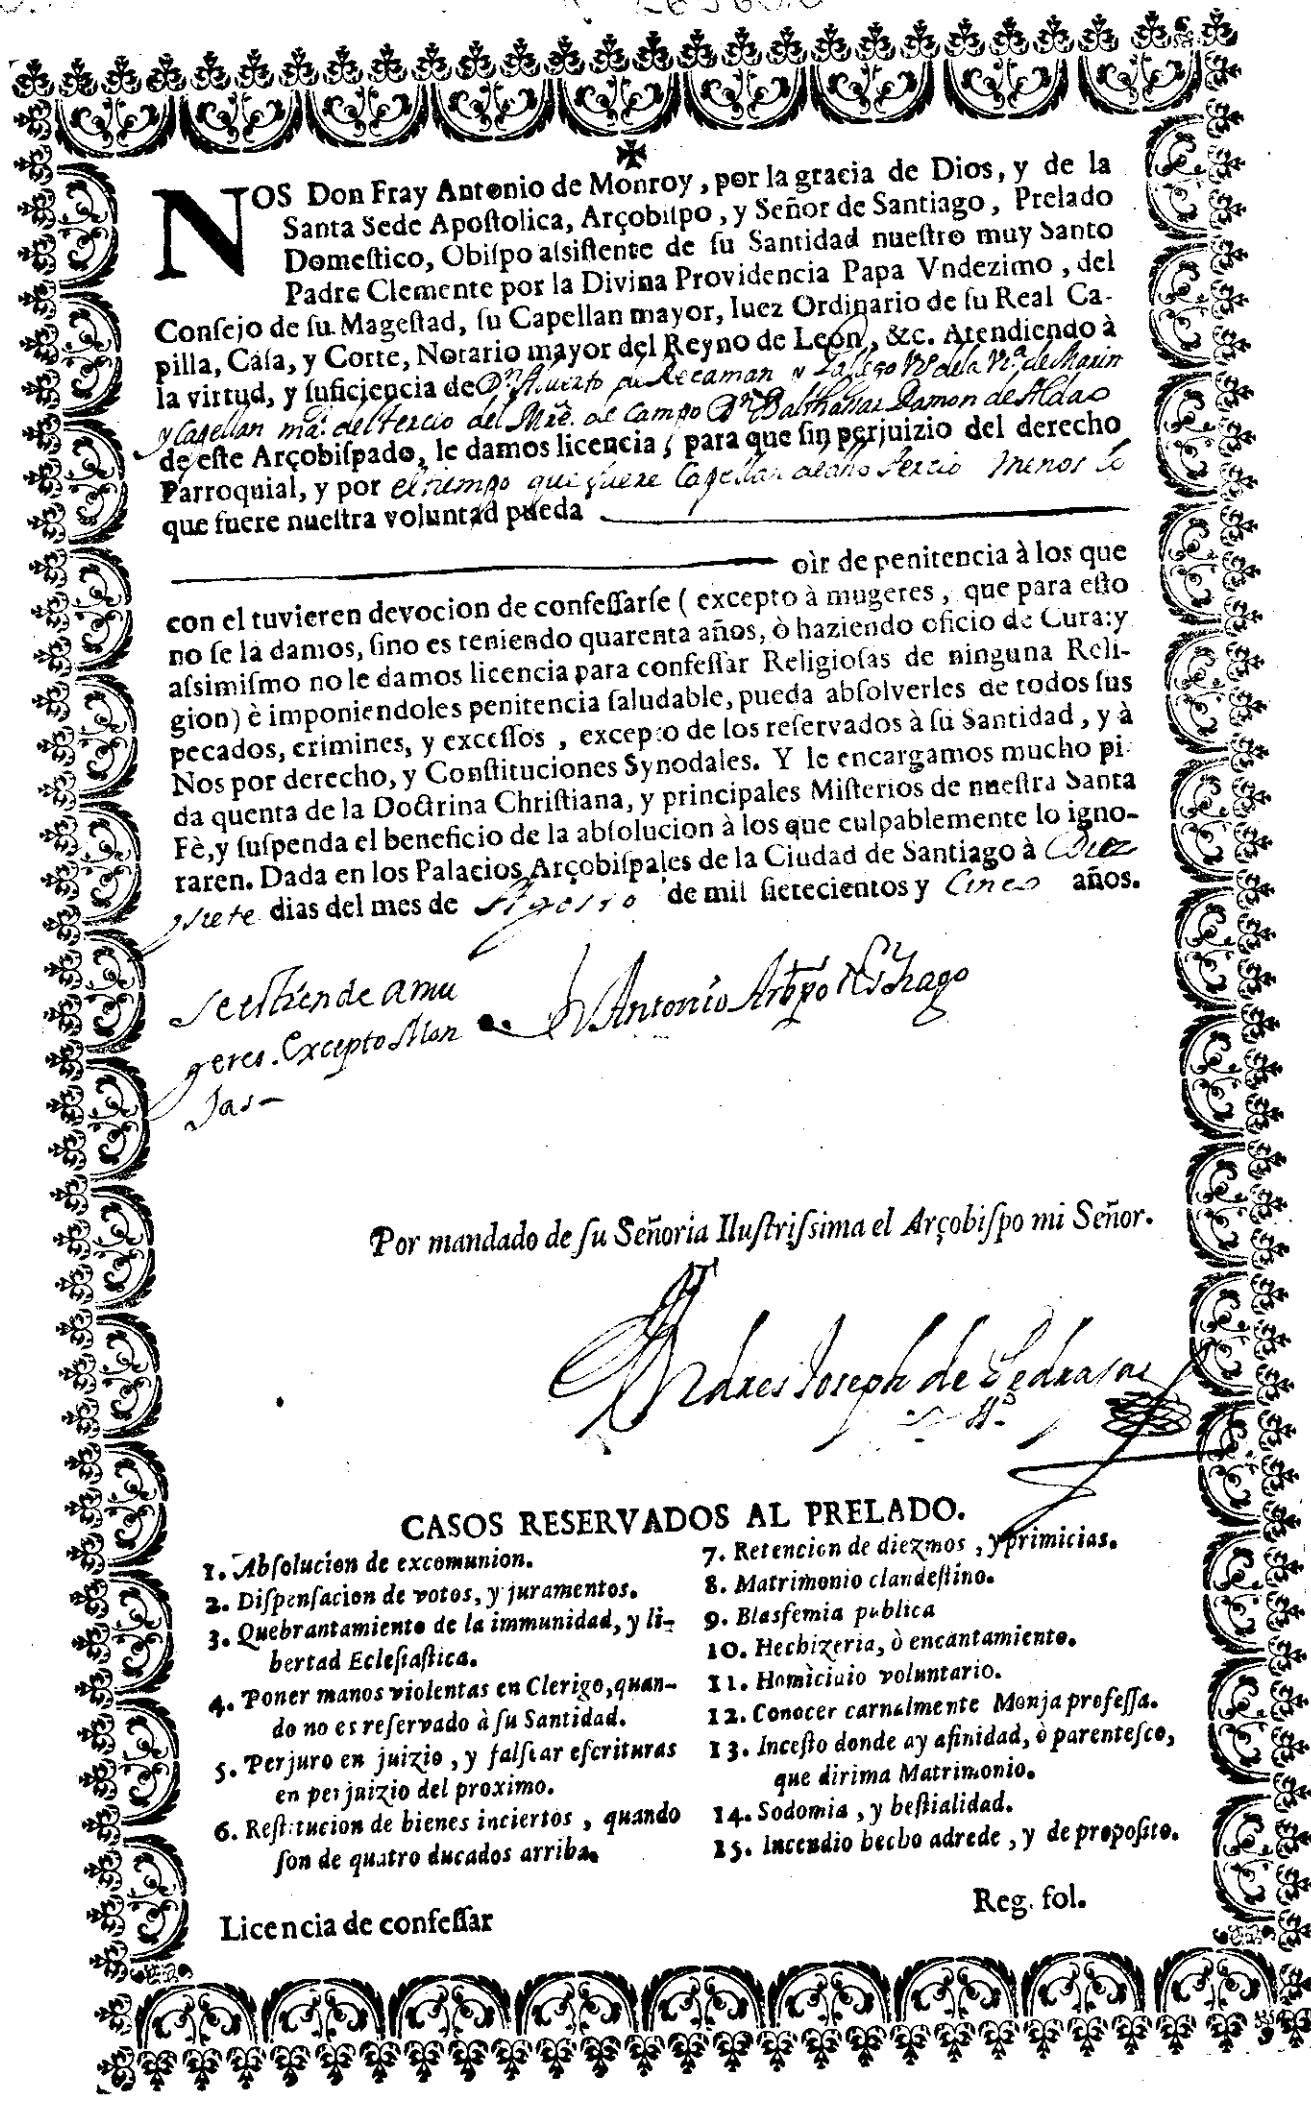 NOS Don Fray Antonio de Monroy, por la gracia de Dios, y de la
Santa Sede Apoſtolica, Arçobiſpo, y Señor de Santiago, Prelado
Domeſtico, Obiſpo aſsiſtente de ſu Santidad nueſtro muy Santo
Padre Clemente por la Divina Providencia Papa Vndezimo, del
Conſejo de ſu Mageſtad, ſu Capellan mayor, Iuez Ordinario de ſu Real Ca-
pilla, Caſa, y Corte, Notario mayor del Reyno de Leon, &c. Atendiendo à
la virtud, y ſuficiencia de Dn Alverto de Recaman y Gallego Vº de la Vª de
y Capellan mâ. del tercio del Mrê. de Campo Dn Balthassar Ramon de Aldao
de eſte Arçobiſpado, le damos licencia, para que ſin perjuizio del derecho
Parroquial, y por el tiempo que fuere Capellan dedho tercio menos lo
que fuere nueſtra voluntad pueda
oìr de penitencia à los que
con el tuvieren devocion de confeſſarſe ( excepto à mugeres, que para eſto
no ſe la damos, ſino es teniendo quarenta años, ò haziendo oficio de Cura: y
aſsimiſmo no le damos licencia para confeſſar Religioſas de ninguna Reli-
gion) è imponiendoles penitencia ſaludable, pueda abſolverles de todos ſus
pecados, crimines, y exceſſos, excepto de los reſervados à ſu Santidad, y à
Nos por derecho, y Conſtituciones Synodales. Y le encargamos mucho pi-
da quenta de la Doctrina Chriſtiana, y principales Miſterios de nueſtra Santa
Fè, y ſuſpenda el beneficio de la abſolucion à los que culpablemente lo igno-
raren. Dada en los Palacios Arçobiſpales de la Ciudad de Santiago à Diez
y siete dias del mes de Agosto de mil ſietecientos y Cinco años.
Se estiende a mu
geres. Excepto Mon
Jas-
Fr Antonio Arbpo de Stiago
Por mandado de ſu Señoria Iluſtriſsima el Arçobiſpo mi Señor.
Andres Joseph de Pedrasas
Sº
CASOS RESERVADOS AL PRELADO.
1. Abſolucion de excomunion.
2. Diſpenſacion de votos, y juramentos.
3. Quebrantamiento de la immunidad, y li-
bertad Ecleſiaſtica.
4. Poner manos violentas en Clerigo, quan-
do no es reſervado à ſu Santidad.
5. Perjuro en juizio, y falſear eſcrituras
en perjuizio del proximo.
6. Reſtitucion de bienes inciertos, quando
ſon de quatro ducados arriba.
7. Retencion de diezmos, y primicias.
8. Matrimonio clandeſtino.
9. Blasfemia publica
10. Hechizeria, ò encantamiento.
11. Homicidio voluntario.
12. Conocer carnalmente Monja profeſſa.
13. Inceſto donde ay afinidad, ò parenteſco,
que dirima Matrimonio.
14. Sodomia, y beſtialidad.
15. Incendio hecho adrede, y de propoſito.
Licencia de confeſſar
Reg. fol.